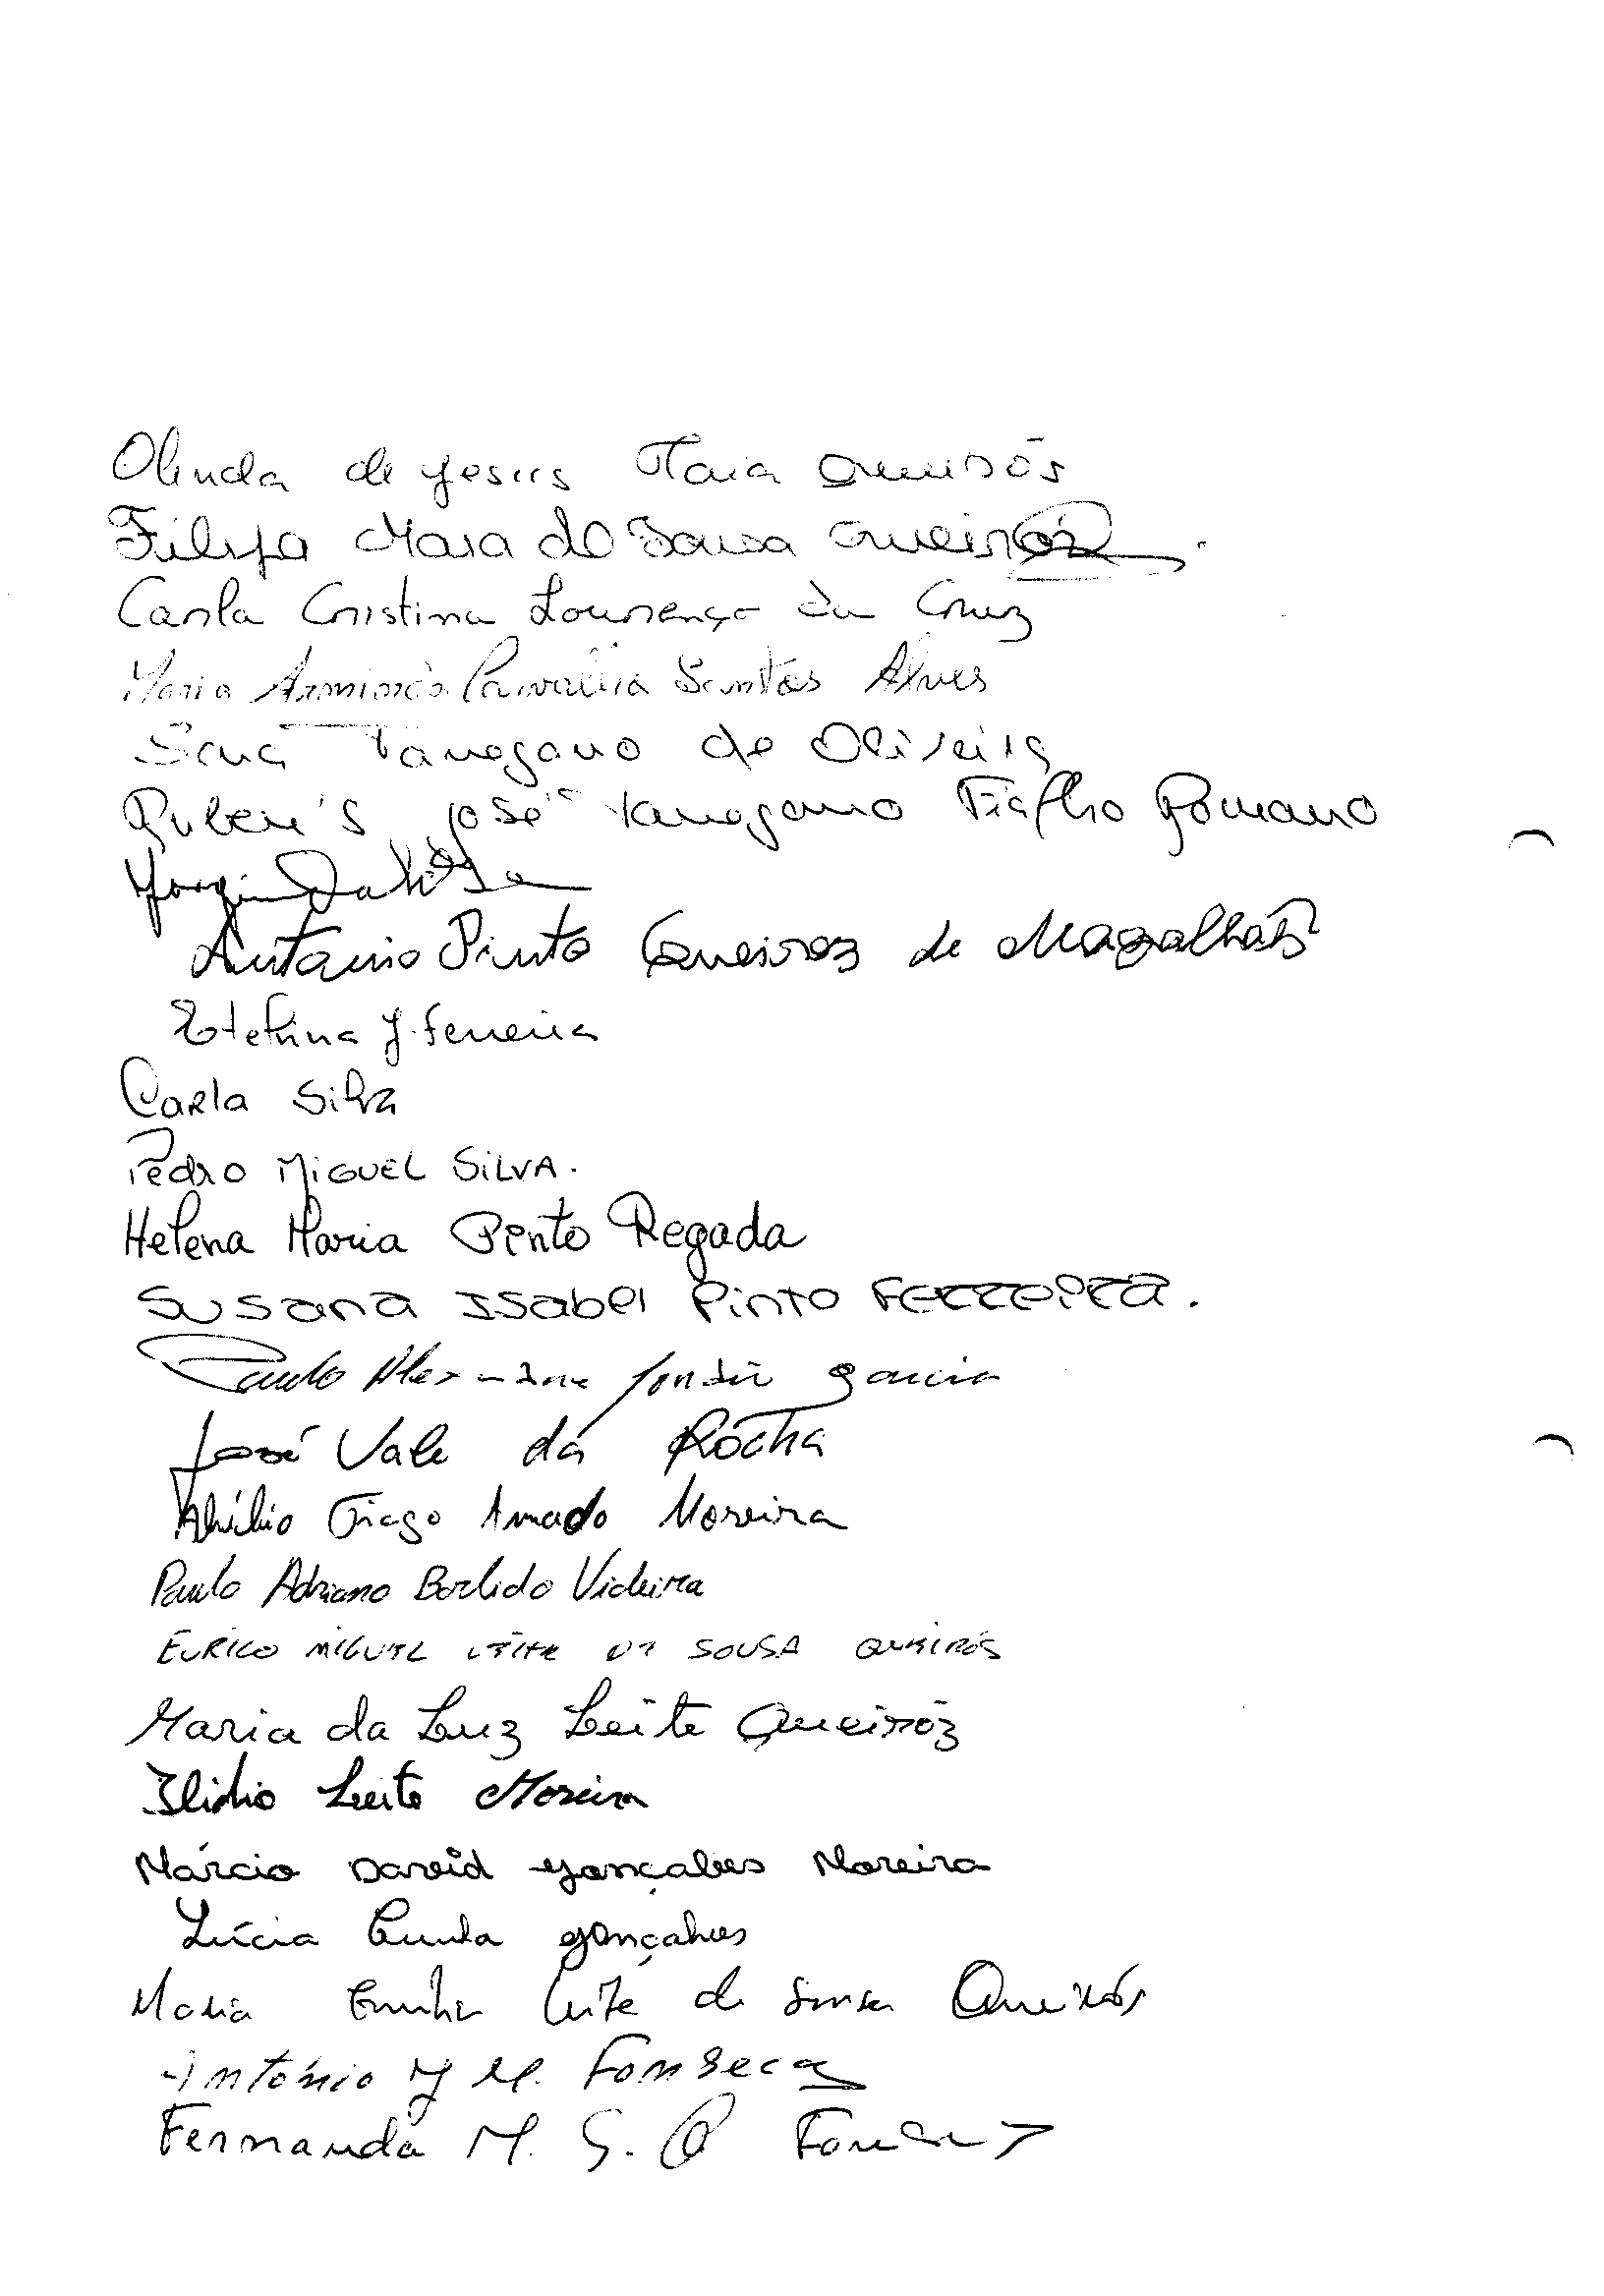 Olinda de Jesus Maia Queirós
Filipa Maia de Sousa Queiroz
Carla Cristina Lourenço da Cruz
Maria Arminda Carvalha Santos Alves
de Oliveira
José Fialho Romano
António Pinto Queiroz de Magalhães
Etelvina J. Ferreira
Carla Silva
Pedro Miguel Silva.
Helena Maria Pinto Regada
Susana Isabel Pinto Ferreira.
Paulo Garcia
José Vale da Rocha
Abílio Tiago Amado Moreira
Paulo Adriano Borlido Videira
EURICO MIGUEL LEITE DE SOUSA QUEIRÓS
Maria da Luz Leite Queiroz
Ilidio Leite Moreira
Márcio David Gonçalves Moreira
Lúcia Cunha Gonçalves
Maria Emília Leite de Sousa Queirós
António J M. Fonseca
Fernanda M. S. Q Fonseca